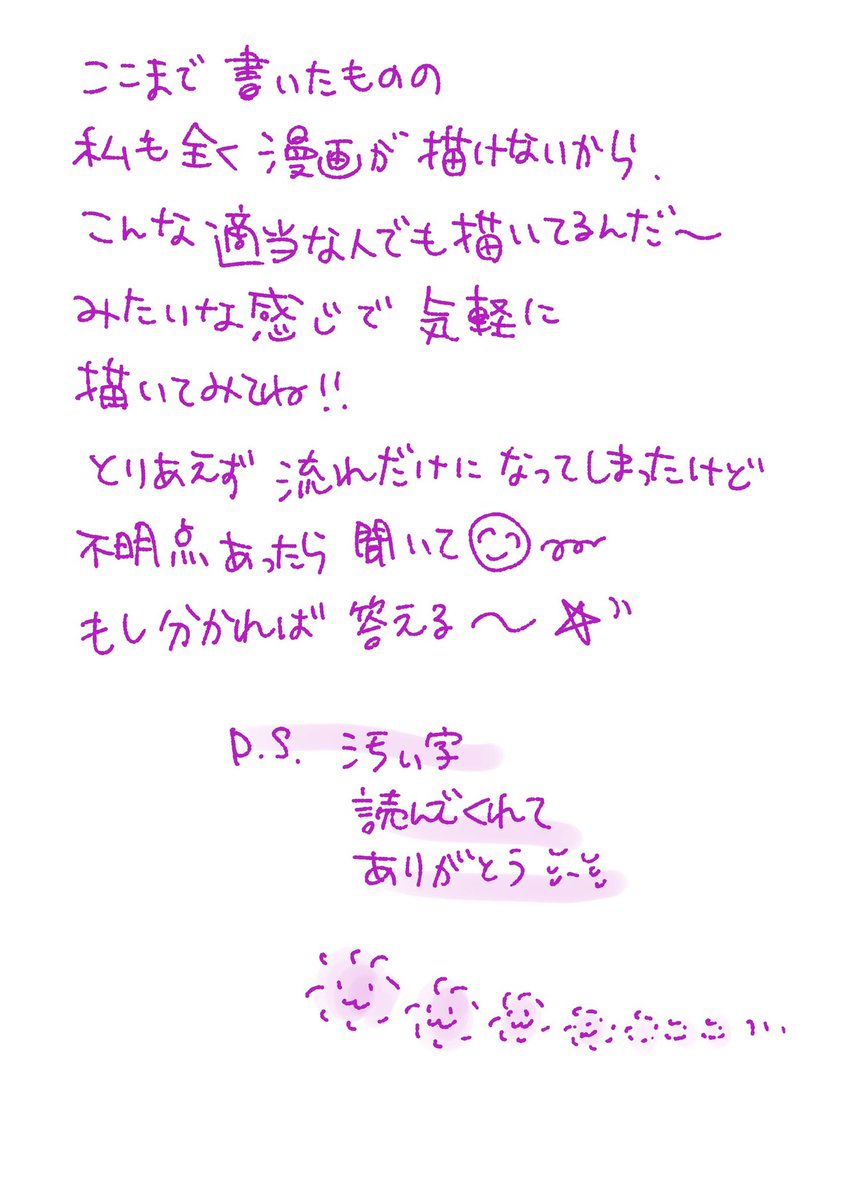 ここまで書いたものの
私も全く漫画が描けないから、
こんな適当な人でも描いてるんだ〜
みたいな感じで気軽に
描いてみてね!!
とりあえず流れだけになってしまったけど
不明点あったら聞いて
もし分かれば答える〜☆
P.S. 汚い字
読んでくれて
ありがとう